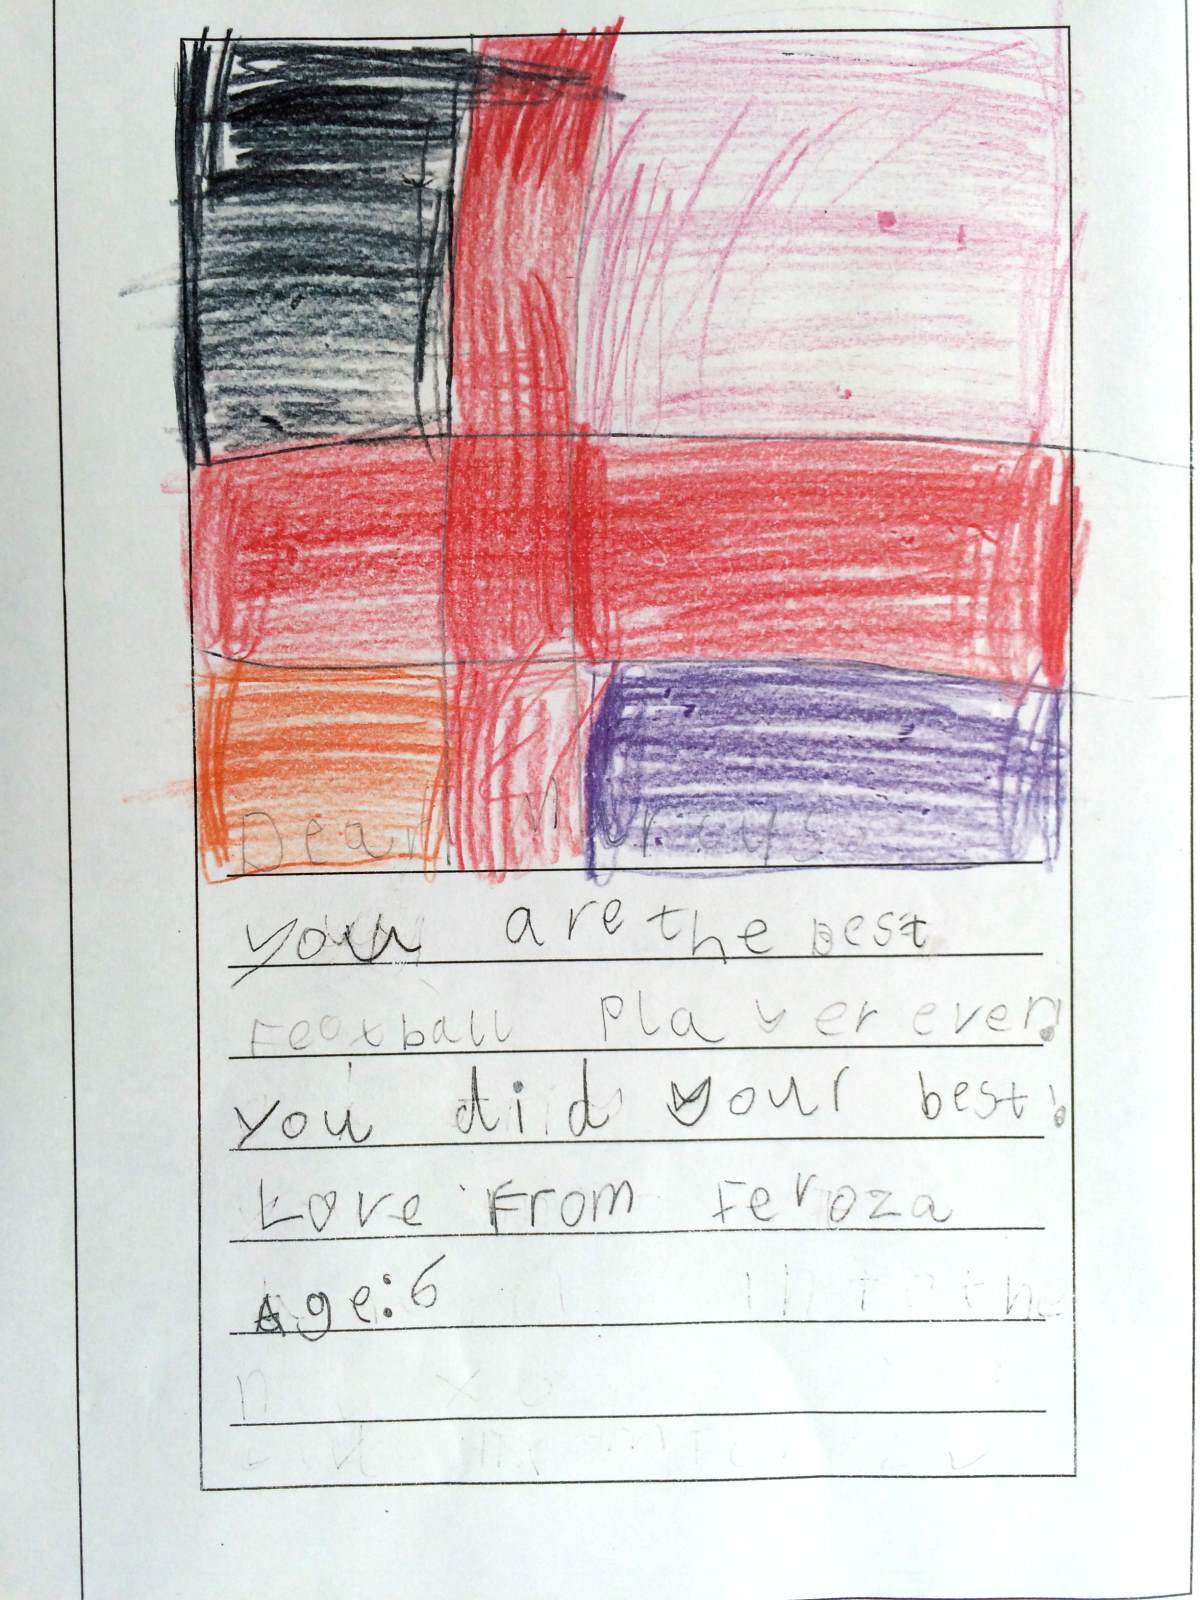 Dear Marcus
you are the Best
Football Player ever!
you did your best!
Love From Feroza
Age:6